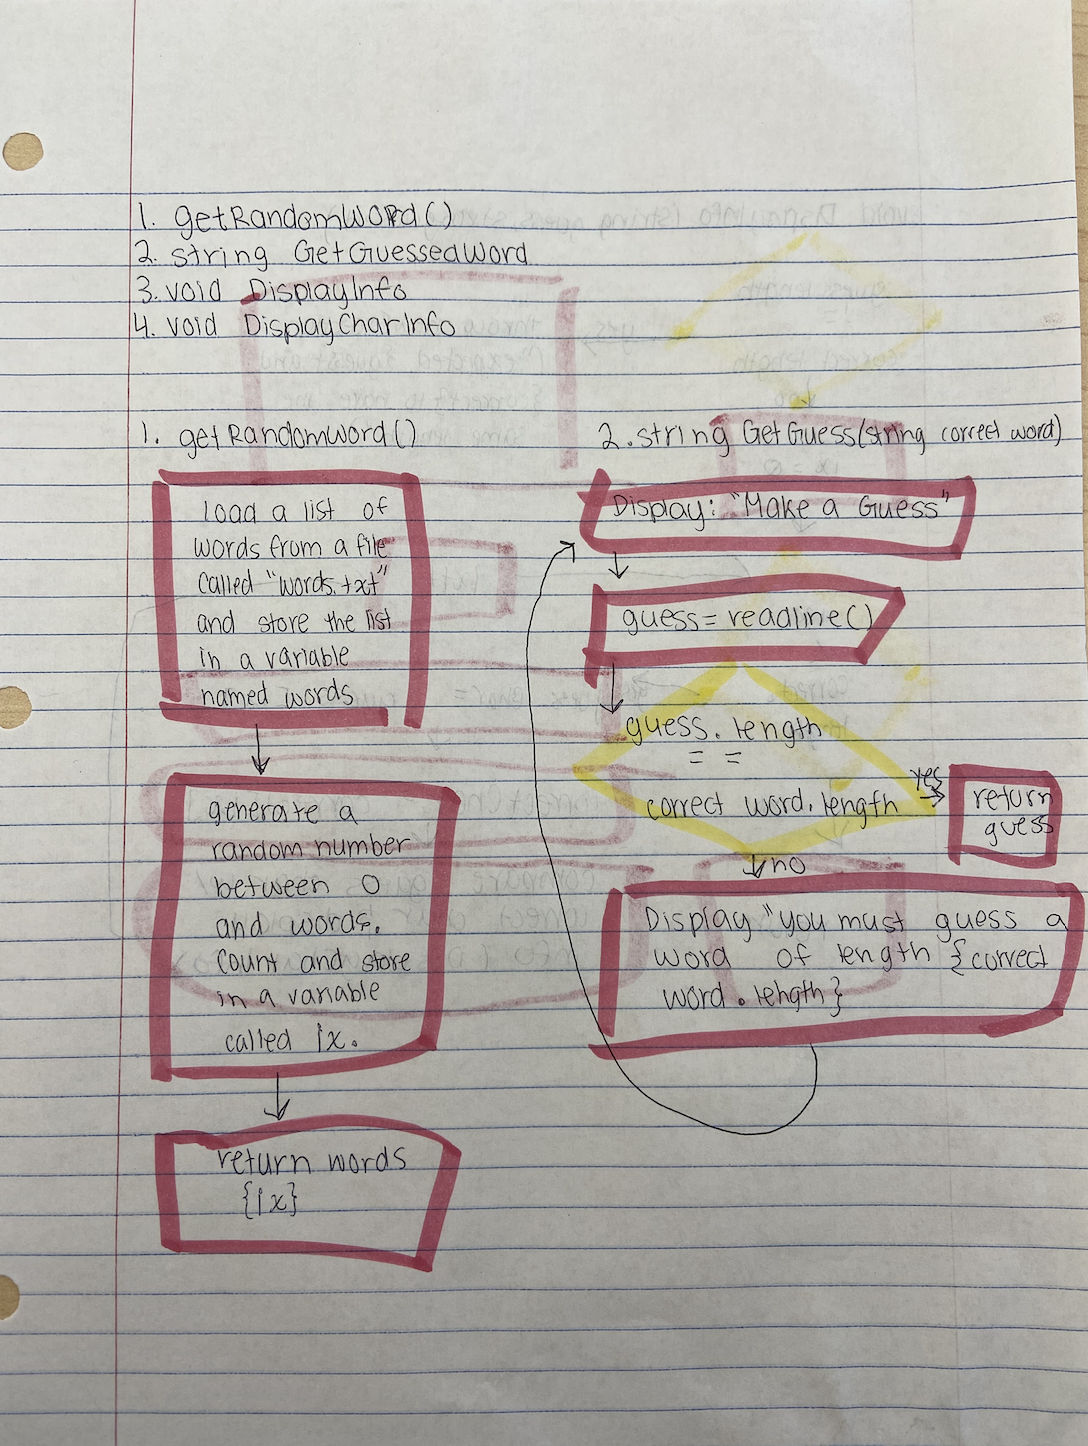 1. getRandomWord()
2. string GetGuessedWord
3. void DisplayInfo
4. void DisplayCharInfo
1. getRandomword()
load a list of
words from a file
called "words.txt"
and store the list
in a variable
named words
generate a
random number
between 0
and words.
count and store
in a variable
called ix.
return words
{ix}
2. string GetGuess(string correct word)
Display: "Make a Guess"
guess = readline()
guess. length
= =
correct word. length
yes
return
guess
no
Display "you must guess a
word of length {correct
word. length}